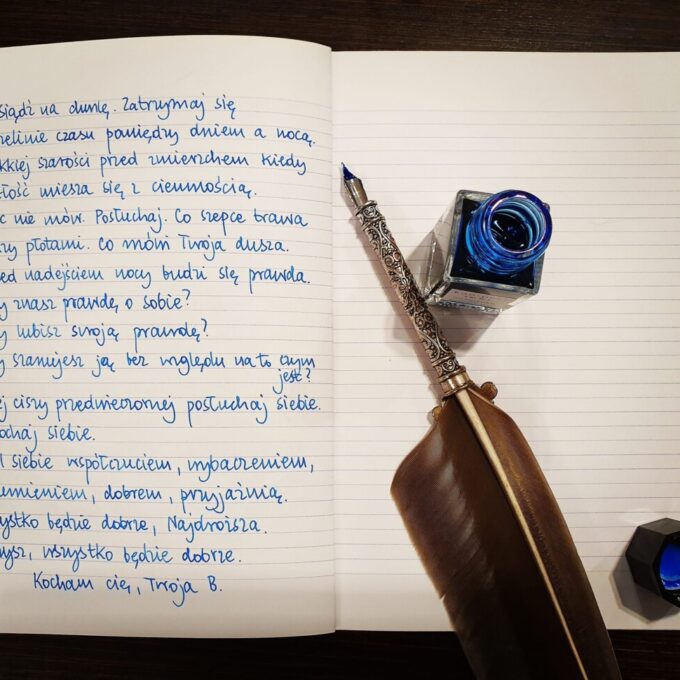 siądź na chwilę. Zatrzymaj się
czasu pomiędzy dniem a nocą.
szarości przed zmierzchem kiedy
miesza się z ciemnością.
nie mów. Posłuchaj. Co szepce trawa
płotami. Co mówi Twoja dusza.
nadejściem nocy budzi się prawda.
znasz prawdę o sobie?
lubisz swoją prawdę?
szanujesz ją bez względu na to czym
jest?
ciszy przedwieczornej posłuchaj siebie.
siebie.
siebie współczuciem, wybaczeniem,
dobrem, przyjaźnią.
będzie dobrze, Najdroższa.
wszystko będzie dobrze.
Kocham cię, Twoja B.